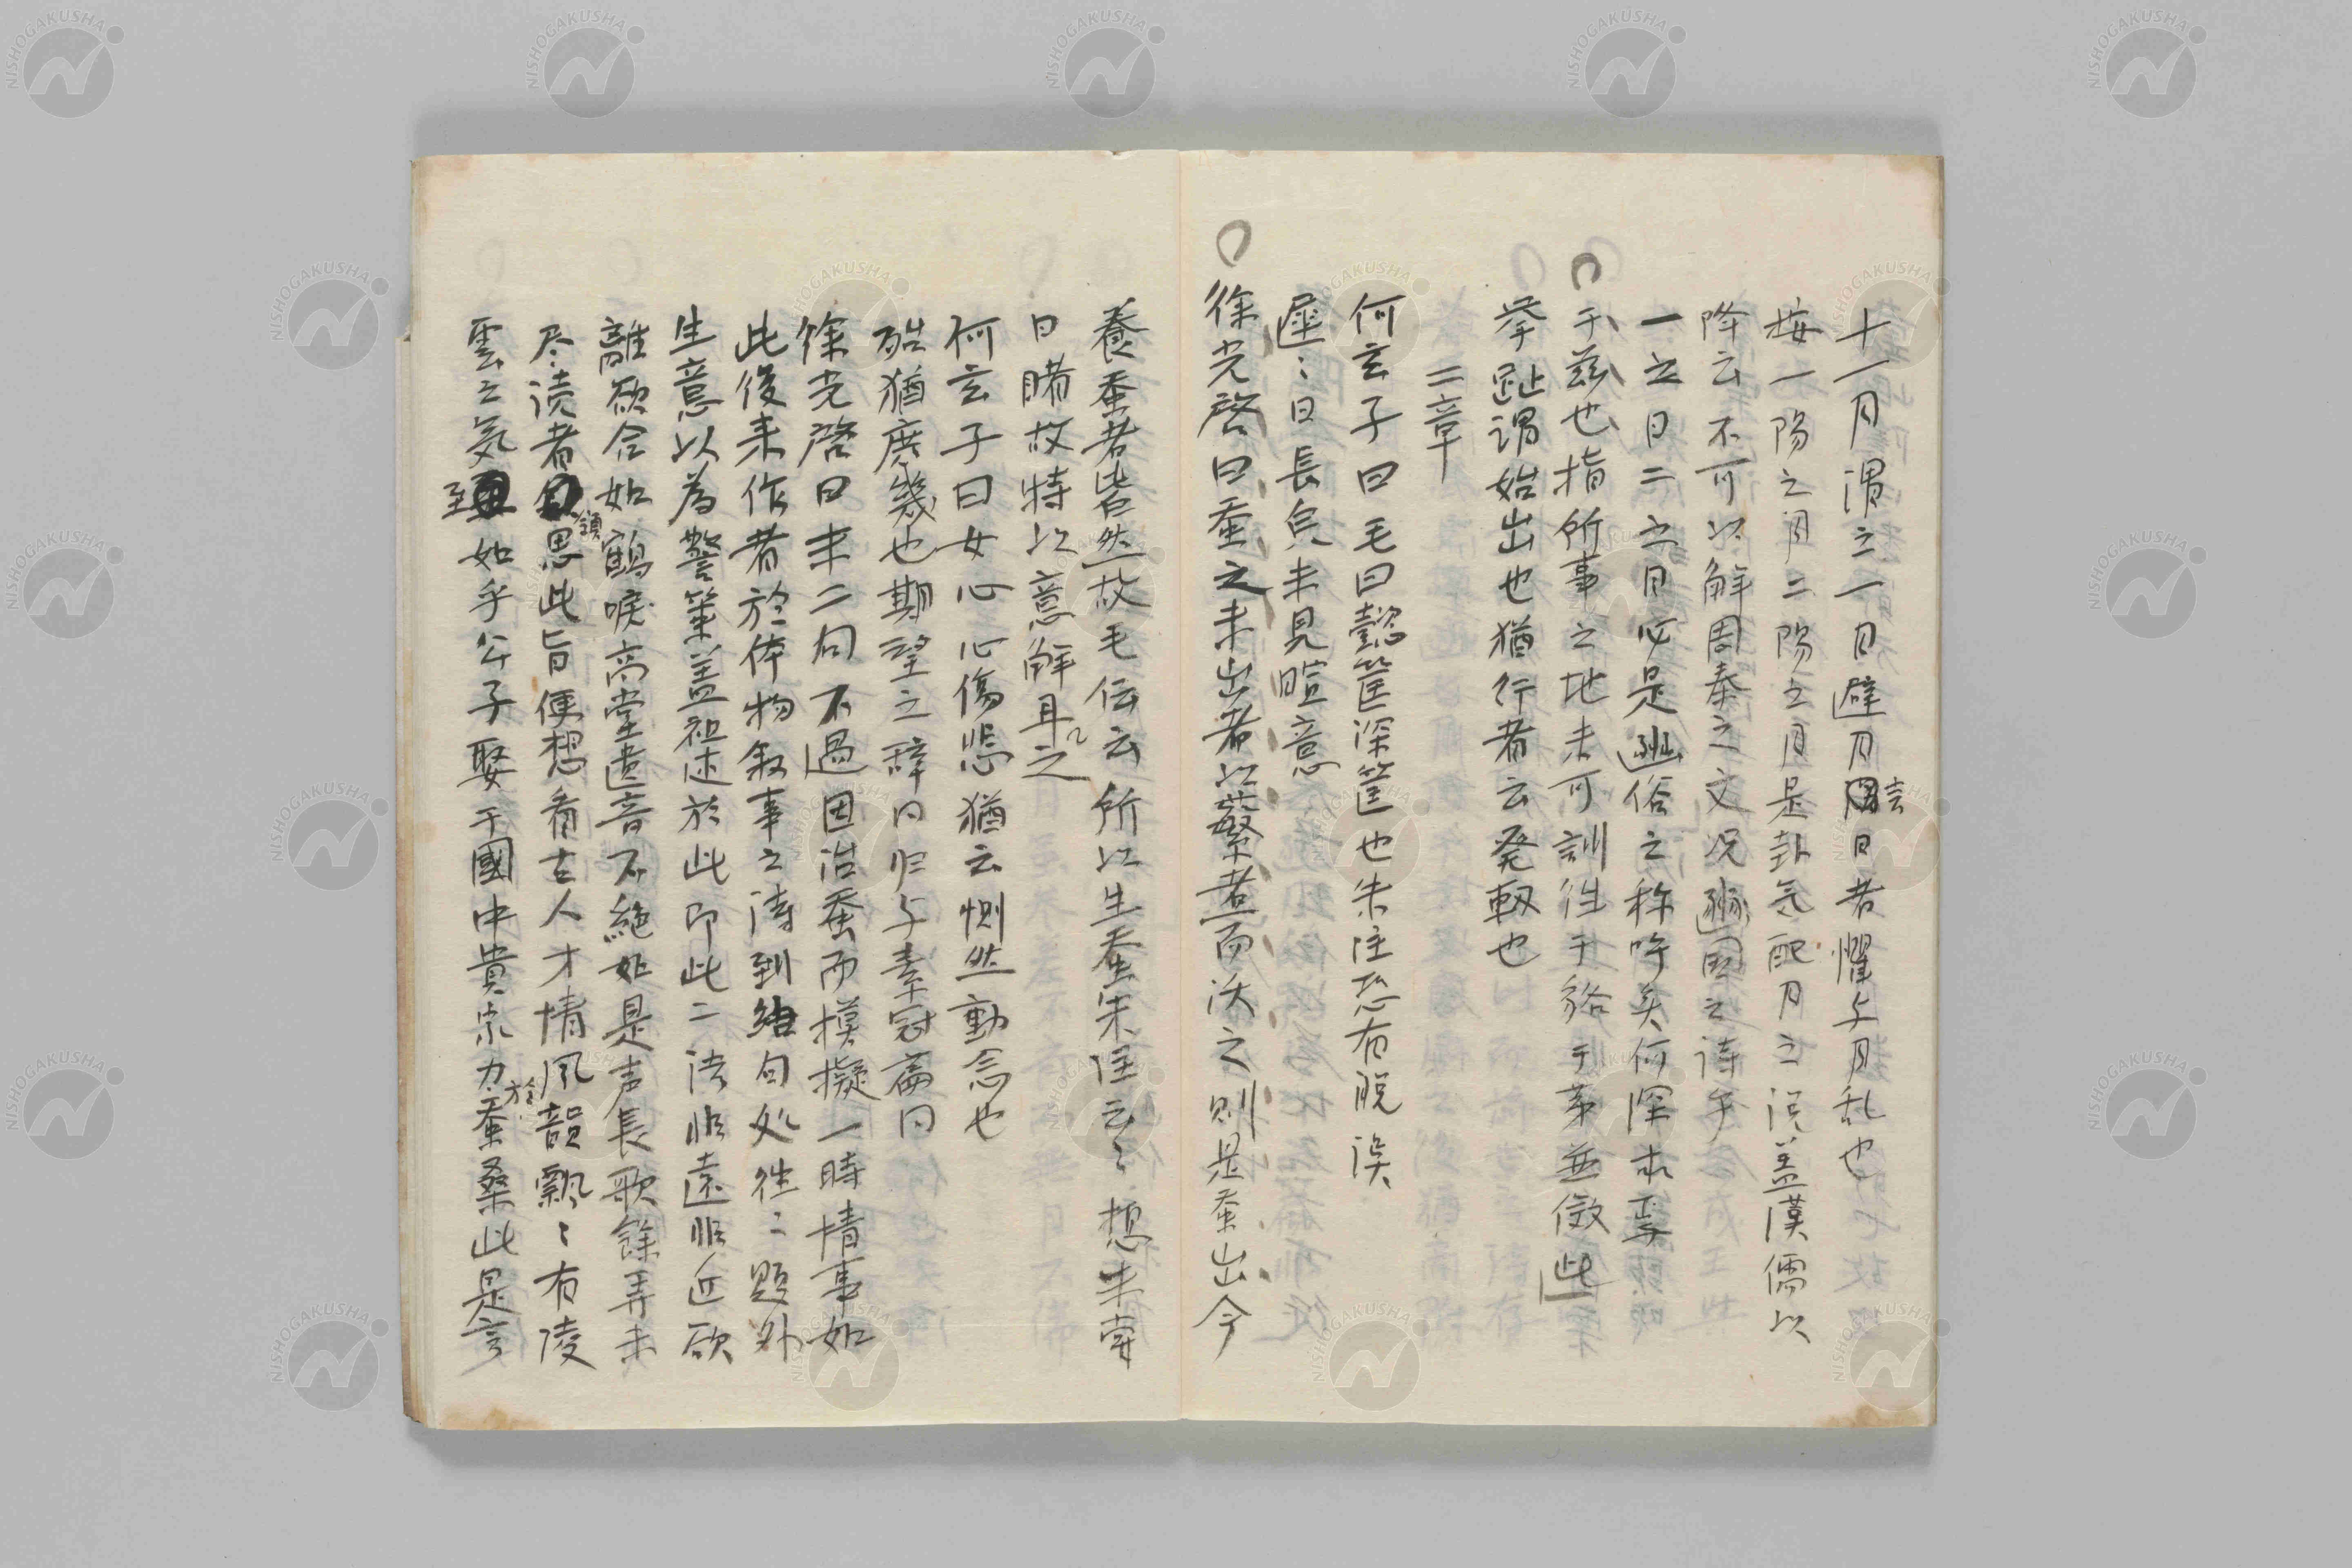 十一月謂之一日避月言日者懼与月乱也
按一陽之月二陽之月是卦気配月之説盖漢儒以
降云不可以解周秦之文况豳国之詩乎
一之日二之日必是豳俗之称呼矣何深求焉
于玆也指所事之地未可訓往于貉于茅並倣此
挙趾謂始出也猶行者云発軔也
二章
何玄子曰毛曰懿筐深筐也朱注恐有脱誤
遲〻日長 未見暄意
徐光啓曰蚕之未出者以蘩煮而沃之則是蚕出今
養蚕者皆然故毛伝云所以生蚕朱注云〻想未嘗
日睹故特以意解耳之
何玄子曰女心心傷悲猶云惻然動念也
殆猶庶幾也期望之辞曰归与素冠篇同
徐光啓曰末二句不過因治蚕而摸擬一時情事如
此後来作者於体物叙事之詩到結句処往〻題外
生意以為警策盖祖述於此即此二法非遠非近欲
離欲合如鶴唳高堂遺音不絶如是声長歌餘弄未
尽読者領思此旨便想看古人才情風韻飄〻有凌
雲之気至如乎公子娶于國中貴宗力於蚕桑此是言
NISHOGAKUSHA